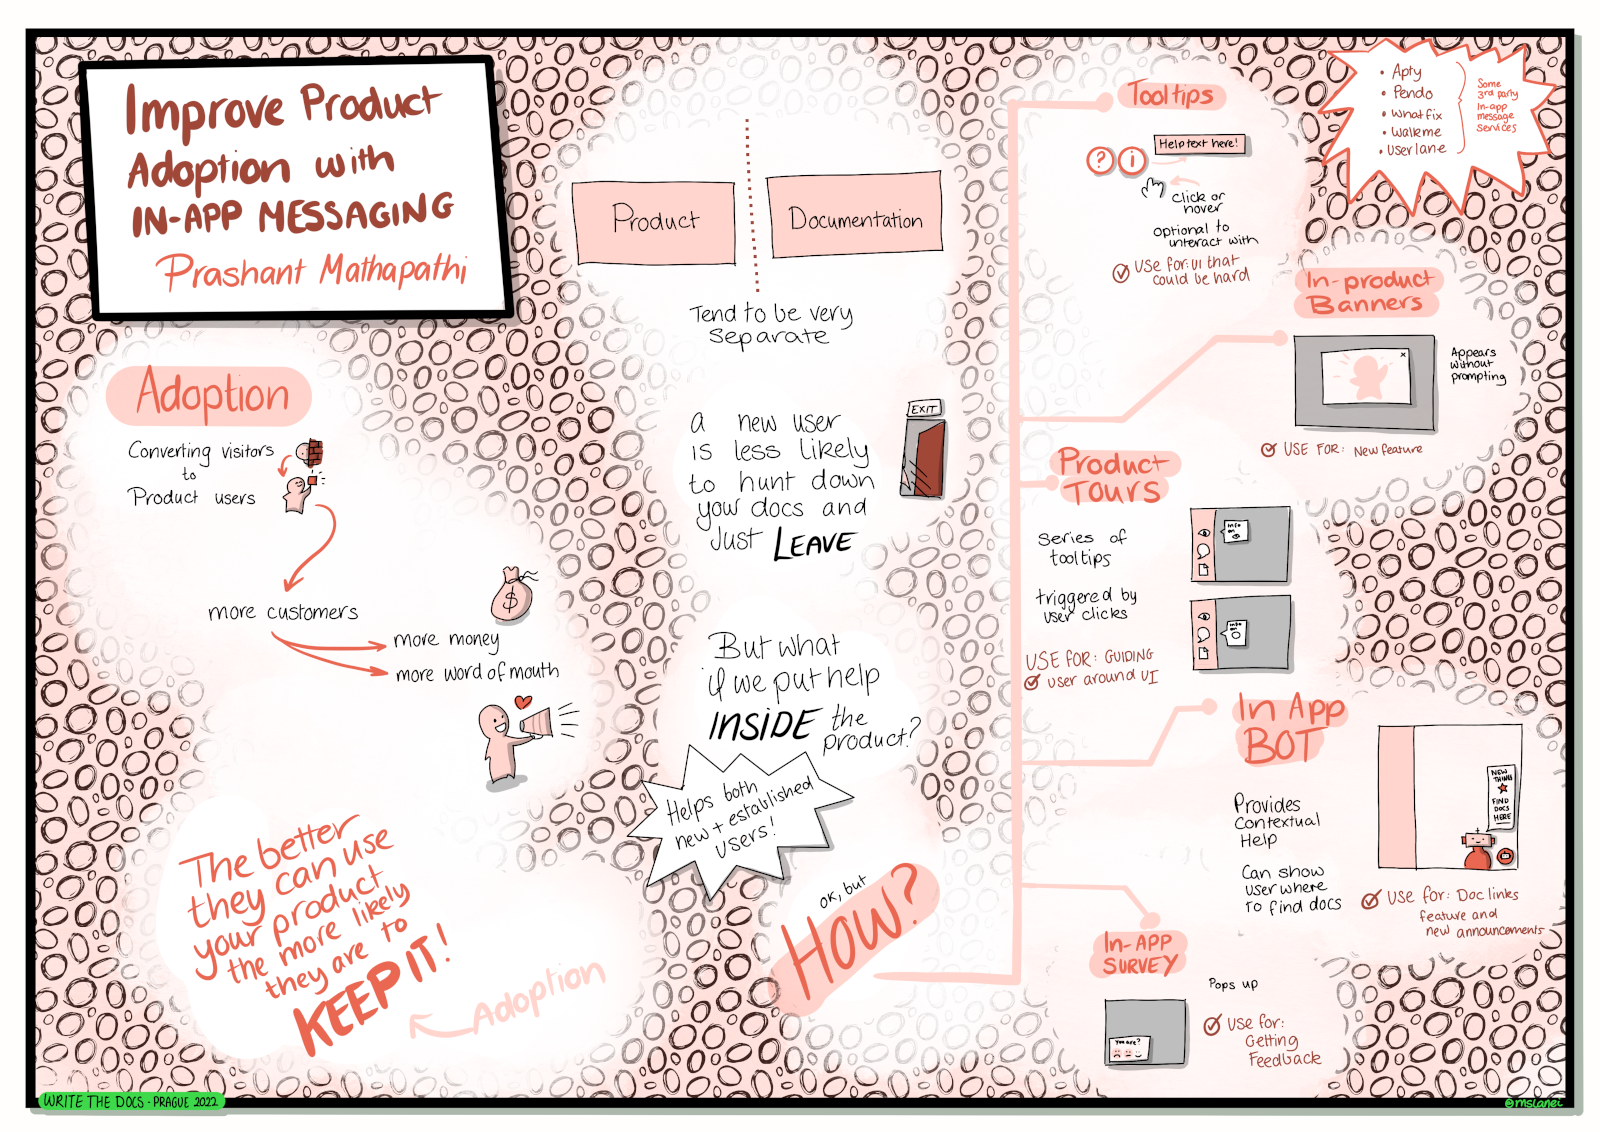 Improve Product
Adoption with
IN-APP MESSAGING
Prashant Mathapathi
Adoption
Converting visitors
to
Product users
more customers
more money
more word of mouth
$
The better
they can use
your product
the more likely
they are to
KEEP IT!
Adoption
Product
Documentation
Tend to be very
separate
a new user
is less likely
to hunt down
your docs and
Just LEAVE
EXIT
But what
if we put help
INSIDE the
product?
Helps both
new + established
users!
OK, but
HOW?
Tooltips
? i
Help text here!
click or
hover
optional to
interact with
USE for: UI that
could be hard
• Apty
• Pendo
• Whatfix
• Walkme
• Userlane
Some
3rd party
In-app
message
services
In-product
Banners
x
Appears
without
prompting
USE FOR: New feature
Product
TOURS
Series of
tooltips
triggered by
user clicks
Info
on
Info
on
USE FOR: GUIDING
user around UI
In App
BOT
Provides
Contextual
Help
Can show
user where
to find docs
NEW
THING
FIND
DOCS
HERE
USE for: Doc links
feature and
new announcements
In-APP
SURVEY
Pops up
You are?
USE for:
Getting
Feedback
WRITE THE DOCS - PRAGUE 2022
@mslanei